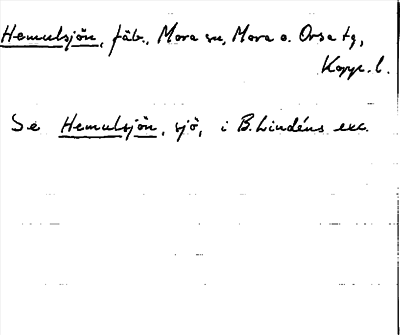 Hemulsjön, fäb., Mora sn, Mora o. Orsa tg,
Kopp. l.
Se Hemulsjön, sjö, i B. Lindéns exc.